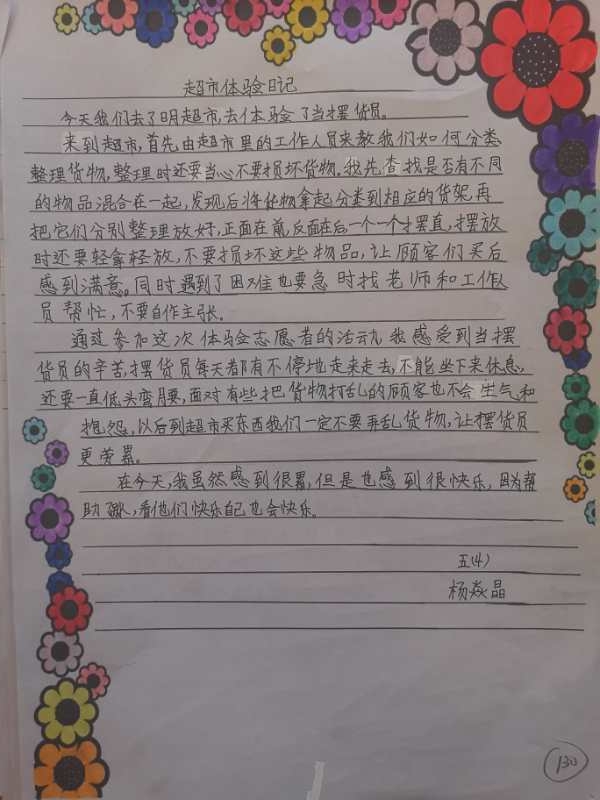 超市体验日记
今天我们去了明超市,去体验了当摆货员。
来到超市,首先由超市里的工作人员来教我们如何分类
整理货物,整理时还要当心不要损坏货物,我先查找是否有不同
的物品混合在一起,发现后将货物拿起分类到相应的货架,再
把它们分别整理放好,正面在前,反面在后一个一个摆直,摆放
时还要轻拿轻放,不要损坏这些物品,让顾客们买后
感到满意。同时遇到了困难也要急时找老师和工作人
员帮忙,不要自作主张。
通过参加这次体验志愿者的活动,我感受到当摆
货员的辛苦,摆货员每天都有不停地走来走去,不能坐下来休息,
还要一直低头弯腰,面对有些把货物打乱的顾客也不会生气和
抱怨,以后到超市买东西我们一定不要弄乱货物,让摆货员
更劳累。
在今天,我虽然感到很累,但是也感到很快乐,因为帮
助了,看他们快乐自己也会快乐。
五(4)
杨焱晶
130